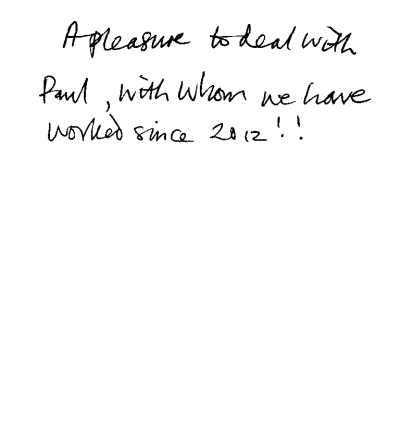 A pleasure to deal with
Paul, with whom we have
worked since 2012!!